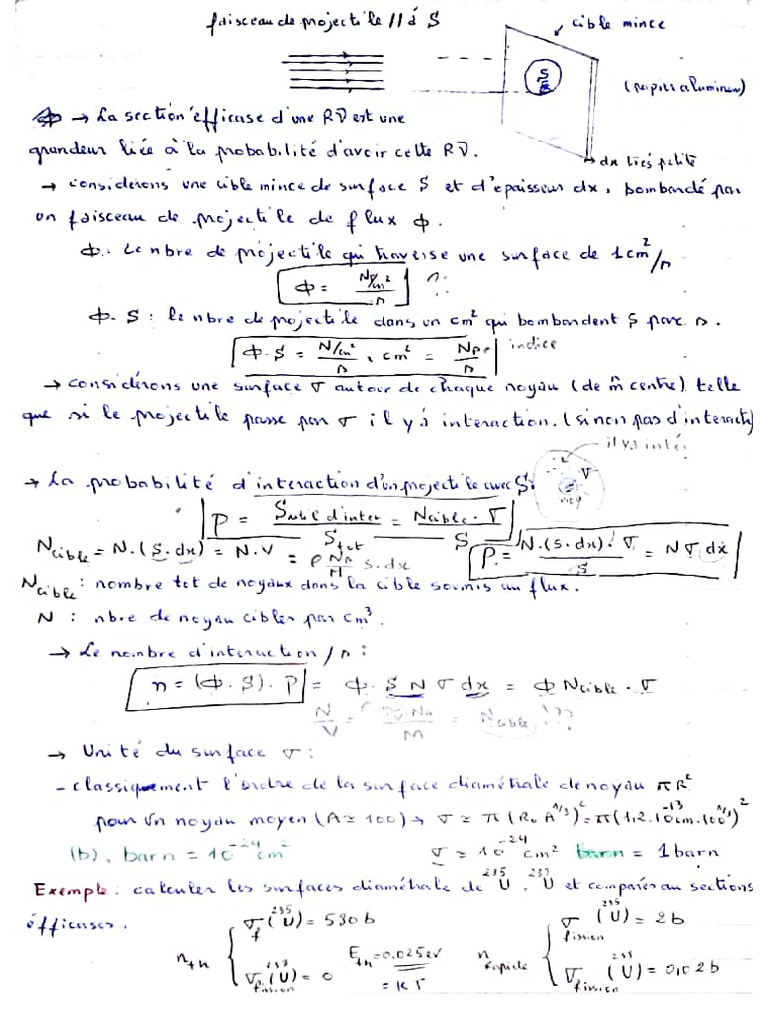 faisceau de projectile // à S
cible mince
S
(papier aluminium)
Φ → La section éfficase d'une RN est une
grandeur liée à la probabilité d'avoir cette RN.
→ dx très petite
→ considerons une cible mince de surface S et d'epaisseur dx, bombardé par
un faisceau de projectile de flux Φ.
Φ: Le nbre de projectile qui traverse une surface de 1cm²/s
Φ = Np/cm² / s
Φ.S : le nbre de projectile dans un cm² qui bombardent S par s.
Φ.S = N/cm² / s . cm² = Np / s indice
→ considérons une surface σ autour de chaque noyau (de m̂ centre) telle
que si le projectile passe par σ il y a interaction. (sinon pas d'interact)
il y a inté.
→ La probabilité d'interaction d'un projectile avec S:
σ
noy
P = S util d'inter / S tot = Ncible . σ / S
Ncible = N.(S.dx) = N.V = ρ NA / M S.dx
P = N.(S.dx).σ / S = Nσ dx
Ncible : nombre tot de noyaux dans la cible soumis au flux.
N : nbre de noyau cibles par cm³.
→ Le nombre d'interaction /s :
n = (Φ.S).P = Φ.S N σ dx = Φ Ncible . σ
N / V = ρ.V.NA / M = Ncible ???
→ Unité du surface σ :
- classiquement l'ordre de la surface diamétrale de noyau πR²
pour un noyau moyen (A≃100) → σ ≃ π(R₀ A^1/3)² = π(1,2.10^-13 cm.100^1/3)²
(b), barn = 10^-24 cm² σ ≃ 10^-24 cm² barn = 1 barn
Exemple : calculer les surfaces diamétrale de ²³⁵U, ²³³U et comparés au sections
éfficases.
n th { σf (²³⁵U) = 580 b
E th = 0.025 eV
= KT
σ fission (U) = 0
n rapide { σ fission (²³⁵U) = 2b
σ fission (U) = 0,02 b